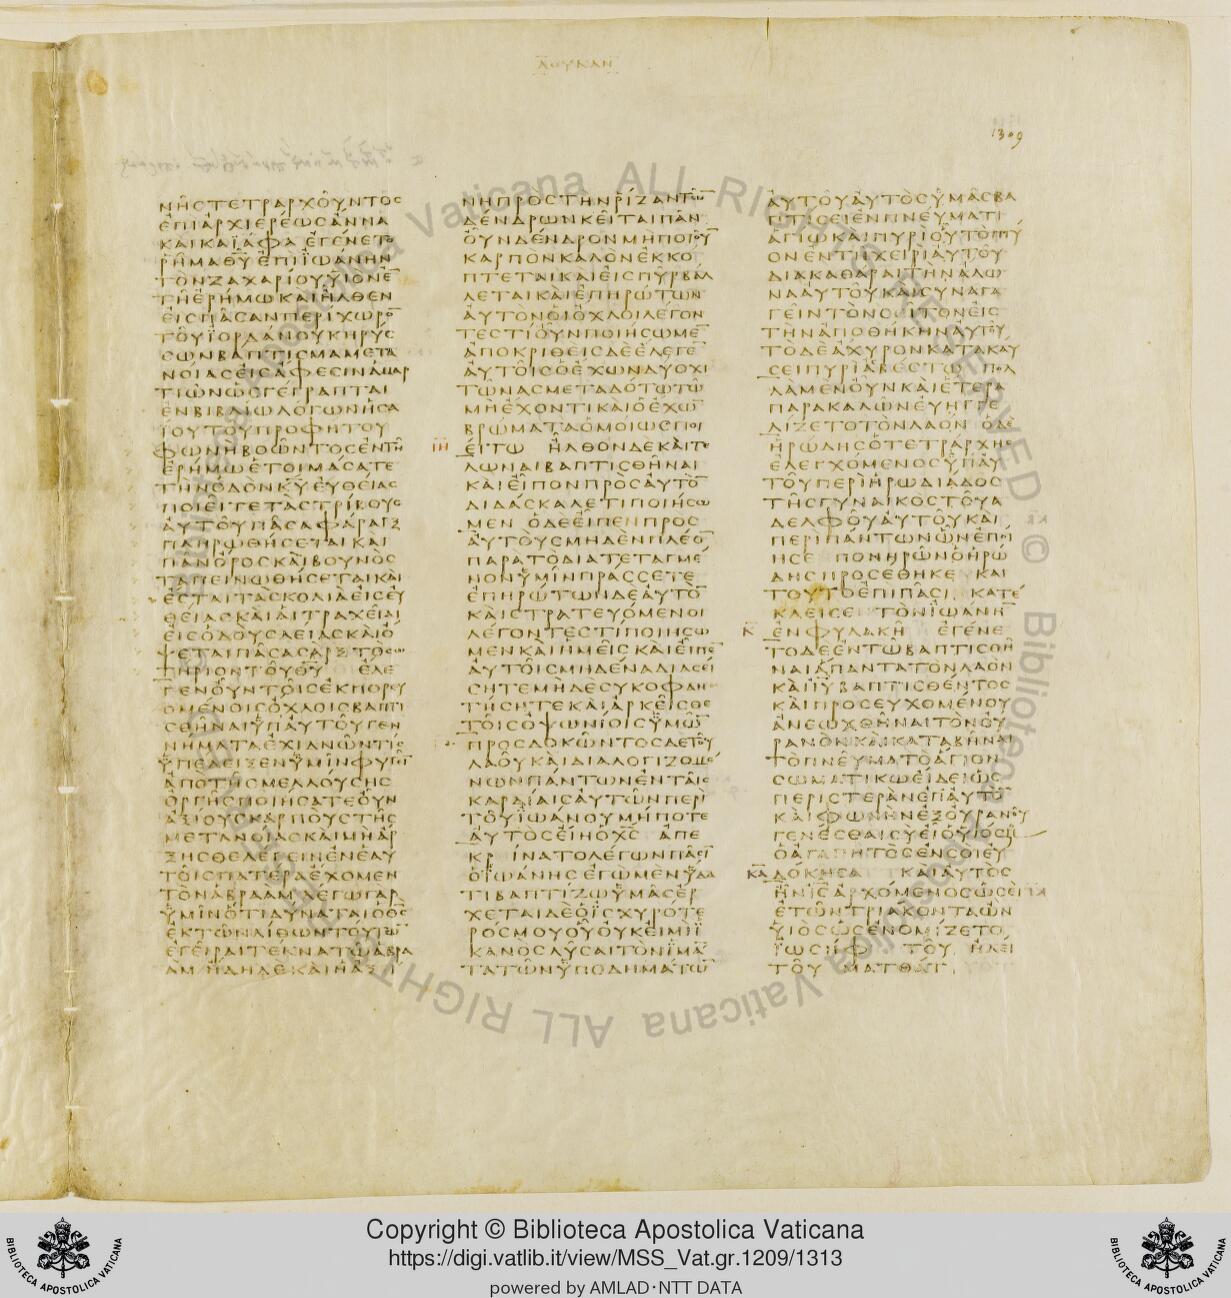 ΛΟΥΚΑΝ
1309
ΝΗΣΤΕΤΡΑΡΧΟΥΝΤΟΣ
ΕΠΙΑΡΧΙΕΡΕΩΣΑΝΝΑ
ΚΑΙΚΑΙΑΦΑ ΕΓΕΝΕΤΟ
ΡΗΜΑΘΥ ΕΠΙΙΩΑΝΗΝ
ΤΟΝΖΑΧΑΡΙΟΥΥΙΟΝΕ̅
ΤΗΕΡΗΜΩΚΑΙΗΛΘΕΝ
ΕΙΣΠΑΣΑΝΠΕΡΙΧΩΡΟ̅
ΤΟΥΙΟΡΔΑΝΟΥΚΗΡΥΣ
ΣΩΝΒΑΠΤΙΣΜΑΜΕΤΑ
ΝΟΙΑΣΕΙΣΑΦΕΣΙΝΑΜΑΡ
ΤΙΩΝΩΣΓΕΓΡΑΠΤΑΙ
ΕΝΒΙΒΛΙΩΛΟΓΩΝΗΣΑ
ΙΟΥΤΟΥΠΡΟΦΗΤΟΥ
ΦΩΝΗΒΟΩΝΤΟΣΕΝΤΗ
ΕΡΗΜΩΕΤΟΙΜΑΣΑΤΕ
ΤΗΝΟΔΟΝΚ̅Υ̅ΕΥΘΕΙΑΣ
ΠΟΙΕΙΤΕΤΑΣΤΡΙΒΟΥΣ
ΑΥΤΟΥΠΑΣΑΦΑΡΑΓΞ
ΠΛΗΡΩΘΗΣΕΤΑΙΚΑΙ
ΠΑΝΟΡΟΣΚΑΙΒΟΥΝΟΣ
ΤΑΠΕΙΝΩΘΗΣΕΤΑΙΚΑΙ
ΕΣΤΑΙΤΑΣΚΟΛΙΑΕΙΣΕΥ
ΘΕΙΑΣΚΑΙΑΙΤΡΑΧΕΙΑΙ
ΕΙΣΟΔΟΥΣΛΕΙΑΣΚΑΙΟ
ΨΕΤΑΙΠΑΣΑΣΑΡΞΤΟΣΩ
ΤΗΡΙΟΝΤΟΥΘ̅Υ̅ ΕΛΕ
ΓΕΝΟΥΝΤΟΙΣΕΚΠΟΡΕΥ
ΟΜΕΝΟΙΣΟΧΛΟΙΣΒΑΠΤΙ
ΣΘΗΝΑΙΥΠΑΥΤΟΥΓΕΝ
ΝΗΜΑΤΑΕΧΙΔΝΩΝΤΙΣ
ΥΠΕΔΕΙΞΕΝΥΜΙΝΦΥΓΕΙ̅
ΑΠΟΤΗΣΜΕΛΛΟΥΣΗΣ
ΟΡΓΗΣΠΟΙΗΣΑΤΕΟΥΝ
ΑΞΙΟΥΣΚΑΡΠΟΥΣΤΗΣ
ΜΕΤΑΝΟΙΑΣΚΑΙΜΗΑΡ
ΞΗΣΘΕΛΕΓΕΙΝΕΝΕΑΥ
ΤΟΙΣΠΑΤΕΡΑΕΧΟΜΕΝ
ΤΟΝΑΒΡΑΑΜ ΛΕΓΩΓΑΡ
ΥΜΙΝΟΤΙΔΥΝΑΤΑΙΟΘ̅Σ̅
ΕΚΤΩΝΛΙΘΩΝΤΟΥΤΩ̅
ΕΓΕΙΡΑΙΤΕΚΝΑΤΩΑΒΡΑ
ΑΜ ΗΔΗΔΕΚΑΙΗΑΞΙ
ΝΗΠΡΟΣΤΗΝΡΙΖΑΝΤΩ̅
ΔΕΝΔΡΩΝΚΕΙΤΑΙΠΑΝ
ΟΥΝΔΕΝΔΡΟΝΜΗΠΟΙΟΥ̅
ΚΑΡΠΟΝΚΑΛΟΝΕΚΚΟ
ΠΤΕΤΑΙΚΑΙΕΙΣΠΥΡΒΑΛ
ΛΕΤΑΙΚΑΙΕΠΗΡΩΤΩΝ
ΑΥΤΟΝΟΙΟΧΛΟΙΛΕΓΟΝ
ΤΕΣΤΙΟΥΝΠΟΙΗΣΩΜΕ̅
ΑΠΟΚΡΙΘΕΙΣΔΕΕΛΕΓΕ̅
ΑΥΤΟΙΣΟΕΧΩΝΔΥΟΧΙ
ΤΩΝΑΣΜΕΤΑΔΟΤΩΤΩ
ΜΗΕΧΟΝΤΙΚΑΙΟΕΧΩ̅
ΒΡΩΜΑΤΑΟΜΟΙΩΣΠΟΙ
ΕΙΤΩ ΗΛΘΟΝΔΕΚΑΙΤΕ
ΛΩΝΑΙΒΑΠΤΙΣΘΗΝΑΙ
ΚΑΙΕΙΠΟΝΠΡΟΣΑΥΤΟ̅
ΔΙΔΑΣΚΑΛΕΤΙΠΟΙΗΣΩ
ΜΕΝ ΟΔΕΕΙΠΕΝΠΡΟΣ
ΑΥΤΟΥΣΜΗΔΕΝΠΛΕΟ̅
ΠΑΡΑΤΟΔΙΑΤΕΤΑΓΜΕ
ΝΟΝΥΜΙΝΠΡΑΣΣΕΤΕ
ΕΠΗΡΩΤΩΝΔΕΑΥΤΟ̅
ΚΑΙΣΤΡΑΤΕΥΟΜΕΝΟΙ
ΛΕΓΟΝΤΕΣΤΙΠΟΙΗΣΩ
ΜΕΝΚΑΙΗΜΕΙΣΚΑΙΕΙΠΕ̅
ΑΥΤΟΙΣΜΗΔΕΝΑΔΙΑΣΕΙ
ΣΗΤΕΜΗΔΕΣΥΚΟΦΑΝ
ΤΗΣΗΤΕΚΑΙΑΡΚΕΙΣΘΕ
ΤΟΙΣΟΨΩΝΙΟΙΣΥΜΩ̅
ΠΡΟΣΔΟΚΩΝΤΟΣΔΕΤΟΥ
ΛΑΟΥΚΑΙΔΙΑΛΟΓΙΖΟΜΕ
ΝΩΝΠΑΝΤΩΝΕΝΤΑΙΣ
ΚΑΡΔΙΑΙΣΑΥΤΩΝΠΕΡΙ
ΤΟΥΙΩΑΝΟΥΜΗΠΟΤΕ
ΑΥΤΟΣΕΙΗΟΧ̅Σ̅ ΑΠΕ
ΚΡΙΝΑΤΟΛΕΓΩΝΠΑΣΙ̅
ΟΙΩΑΝΗΣΕΓΩΜΕΝΥΔΑ
ΤΙΒΑΠΤΙΖΩΥΜΑΣΕΡ
ΧΕΤΑΙΔΕΟΙΣΧΥΡΟΤΕ
ΡΟΣΜΟΥΟΥΟΥΚΕΙΜΙΙ
ΚΑΝΟΣΛΥΣΑΙΤΟΝΙΜΑ̅
ΤΑΤΩΝΥΠΟΔΗΜΑΤΩ̅
ΑΥΤΟΥΑΥΤΟΣΥΜΑΣΒΑ
ΠΤΙΣΕΙΕΝΠΝΕΥΜΑΤΙ
ΑΓΙΩΚΑΙΠΥΡΙΟΥΤΟΠΤΥ
ΟΝΕΝΤΗΧΕΙΡΙΑΥΤΟΥ
ΔΙΑΚΑΘΑΡΑΙΤΗΝΑΛΩ
ΝΑΑΥΤΟΥΚΑΙΣΥΝΑΓΑ
ΓΕΙΝΤΟΝΣΙΤΟΝΕΙΣ
ΤΗΝΑΠΟΘΗΚΗΝΑΥΤΟΥ
ΤΟΔΕΑΧΥΡΟΝΚΑΤΑΚΑΥ
ΣΕΙΠΥΡΙΑΣΒΕΣΤΩ ΠΟΛ
ΛΑΜΕΝΟΥΝΚΑΙΕΤΕΡΑ
ΠΑΡΑΚΑΛΩΝΕΥΗΓΓΕ
ΛΙΖΕΤΟΤΟΝΛΑΟΝ ΟΔΕ
ΗΡΩΔΗΣΟΤΕΤΡΑΡΧΗΣ
ΕΛΕΓΧΟΜΕΝΟΣΥΠΑΥ
ΤΟΥΠΕΡΙΗΡΩΔΙΑΔΟΣ
ΤΗΣΓΥΝΑΙΚΟΣΤΟΥΑ
ΔΕΛΦΟΥΑΥΤΟΥΚΑΙ
ΠΕΡΙΠΑΝΤΩΝΩΝΕΠΟΙ
ΗΣΕ ΠΟΝΗΡΩΝΟΗΡΩ
ΔΗΣΠΡΟΣΕΘΗΚΕ ΚΑΙ
ΤΟΥΤΟΕΠΙΠΑΣΙ ΚΑΤΕ
ΚΛΕΙΣΕ ΤΟΝΙΩΑΝΗ
ΕΝΦΥΛΑΚΗ ΕΓΕΝΕ
ΤΟΔΕΕΝΤΩΒΑΠΤΙΣΘΗ
ΝΑΙΑΠΑΝΤΑΤΟΝΛΑΟΝ
ΚΑΙΙΥ ΒΑΠΤΙΣΘΕΝΤΟΣ
ΚΑΙΠΡΟΣΕΥΧΟΜΕΝΟΥ
ΑΝΕΩΧΘΗΝΑΙΤΟΝΟΥ
ΡΑΝΟΝΚΑΙΚΑΤΑΒΗΝΑΙ
ΤΟΠΝΕΥΜΑΤΟΑΓΙΟΝ
ΣΩΜΑΤΙΚΩΕΙΔΕΙΩΣ
ΠΕΡΙΣΤΕΡΑΝΕΠΑΥΤΟ̅
ΚΑΙΦΩΝΗΝΕΞΟΥΡΑΝΟΥ
ΓΕΝΕΣΘΑΙΣΥΕΙΟΥΙΟΣΜΟΥ
ΟΑΓΑΠΗΤΟΣΕΝΣΟΙΕΥ
ΔΟΚΗΣΑ ΚΑΙΑΥΤΟΣ
ΗΝΙ̅Σ̅ΑΡΧΟΜΕΝΟΣΩΣΕΙ
ΕΤΩΝΤΡΙΑΚΟΝΤΑΩΝ
ΥΙΟΣΩΣΕΝΟΜΙΖΕΤΟ
ΙΩΣΗΦ ΤΟΥ ΗΛΕΙ
ΤΟΥ ΜΑΤΘΑΤ
Vaticana ALL RIGHTS RESERVED © Biblioteca Apostolica Vaticana ALL RIGHTS
Copyright © Biblioteca Apostolica Vaticana
https://digi.vatlib.it/view/MSS_Vat.gr.1209/1313
powered by AMLAD·NTT DATA
BIBLIOTECA APOSTOLICA VATICANA
BIBLIOTECA APOSTOLICA VATICANA